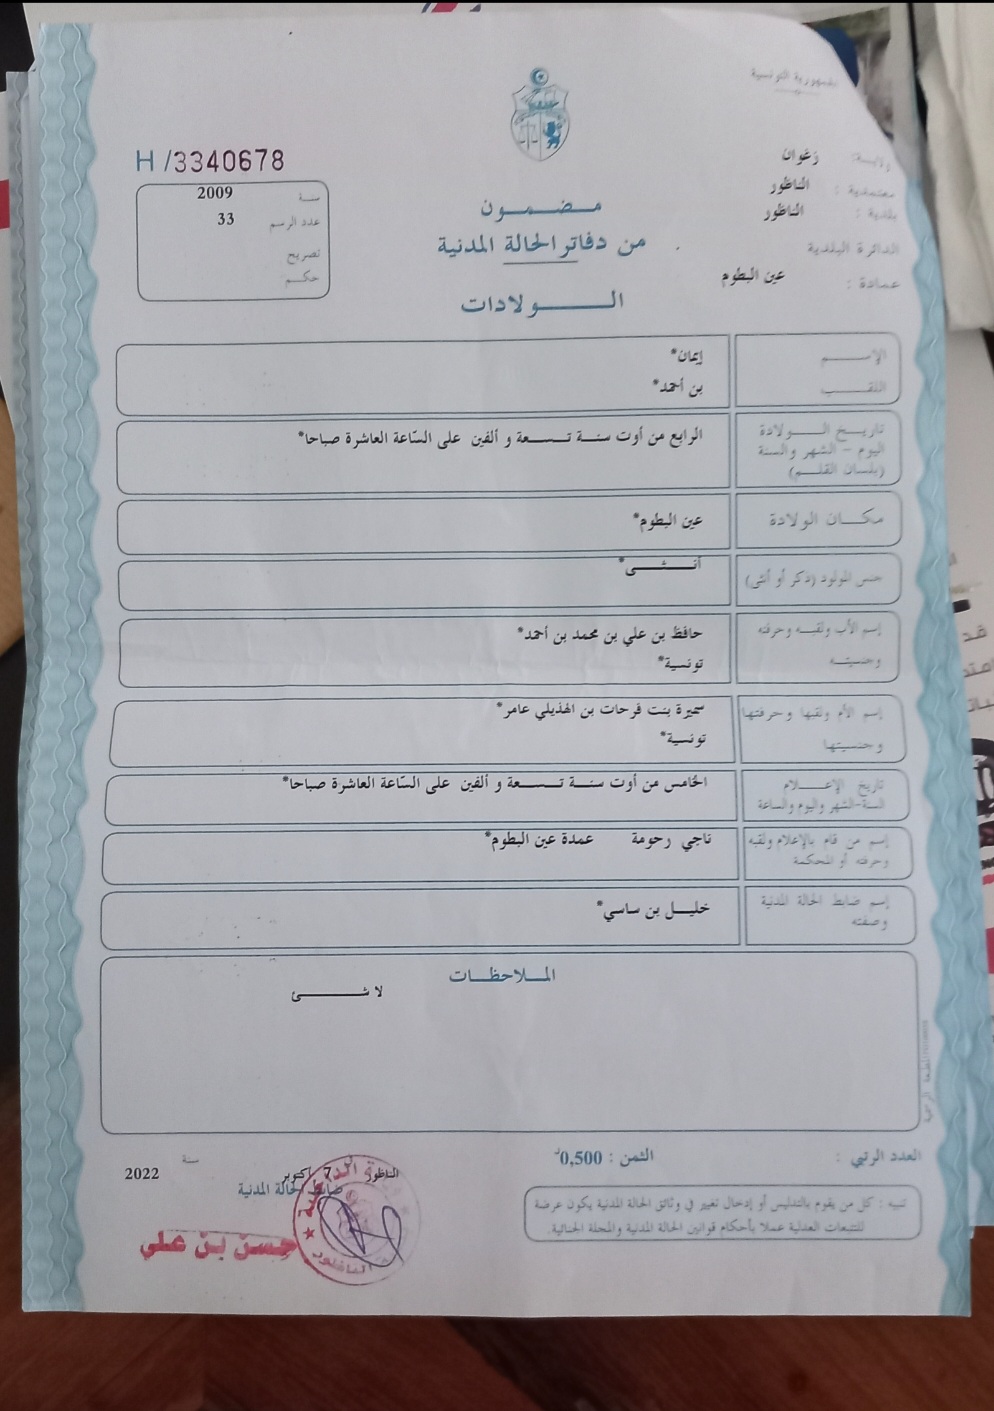 الجمهورية التونسية
ولاية: زغوان
معتمدية : الناظور
بلدية : الناظور
الدائرة البلدية
عمادة : عين البطوم
H /3340678
سنة 2009
عدد الرسم 33
تصريح
حكم
مضمون
من دفاتر الحالة المدنية
الولادات
الإسم إيمان*
اللقب بن أحمد*
تاريخ الولادة الرابع من أوت سنة تسعة و ألفين على السّاعة العاشرة صباحا*
اليوم - الشهر والسنة
(بلسان القلم)
مكان الولادة عين البطوم*
جنس المولود (ذكر أو أنثى) أنثى*
إسم الأب ولقبه وحرفته حافظ بن علي بن محمد بن أحمد*
وجنسيته تونسية*
إسم الأم ولقبها وحرفتها سميرة بنت فرحات بن الهذيلي عامر*
وجنسيتها تونسية*
تاريخ الإعلام الخامس من أوت سنة تسعة و ألفين على السّاعة العاشرة صباحا*
السنة-الشهر واليوم والساعة
إسم من قام بالإعلام ولقبه ناجي رحومة عمدة عين البطوم*
وحرفته أو المحكمة
إسم ضابط الحالة المدنية خليل بن ساسي*
وصفته
الملاحظات
لا شئ
العدد الرتبي :
الثمن : 0,500د
الناظور 7 أكتوبر سنة 2022
ضابط الحالة المدنية
حسن بن علي
الناظور
تنبيه : كل من يقوم بالتدليس أو إدخال تغيير في وثائق الحالة المدنية يكون عرضة
للتتبعات العدلية عملا بأحكام قوانين الحالة المدنية والمجلة الجنائية.